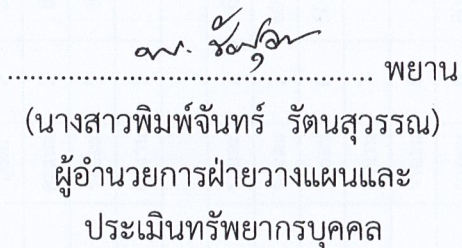 .................................................. พยาน
(นางสาวพิมพ์จันทร์ รัตนสุวรรณ)
ผู้อำนวยการฝ่ายวางแผนและ
ประเมินทรัพยากรบุคคล